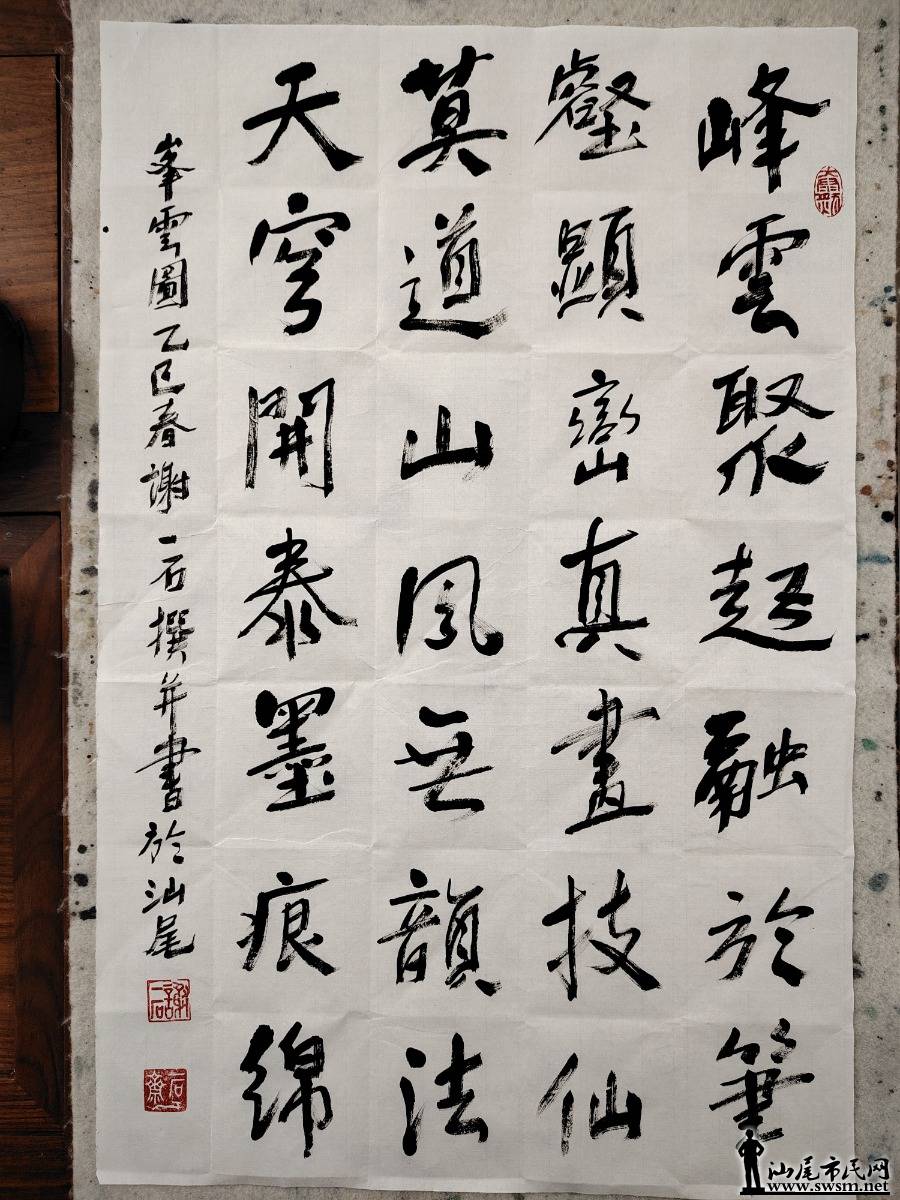 峰雲聚起融於筆
壑顕巒真畫技仙
莫道山風無韻法
天穹開泰墨痕綿
峯雲圖乙巳春謝一石撰并書於汕尾
謝一石
汕尾市民网
www.swsm.net